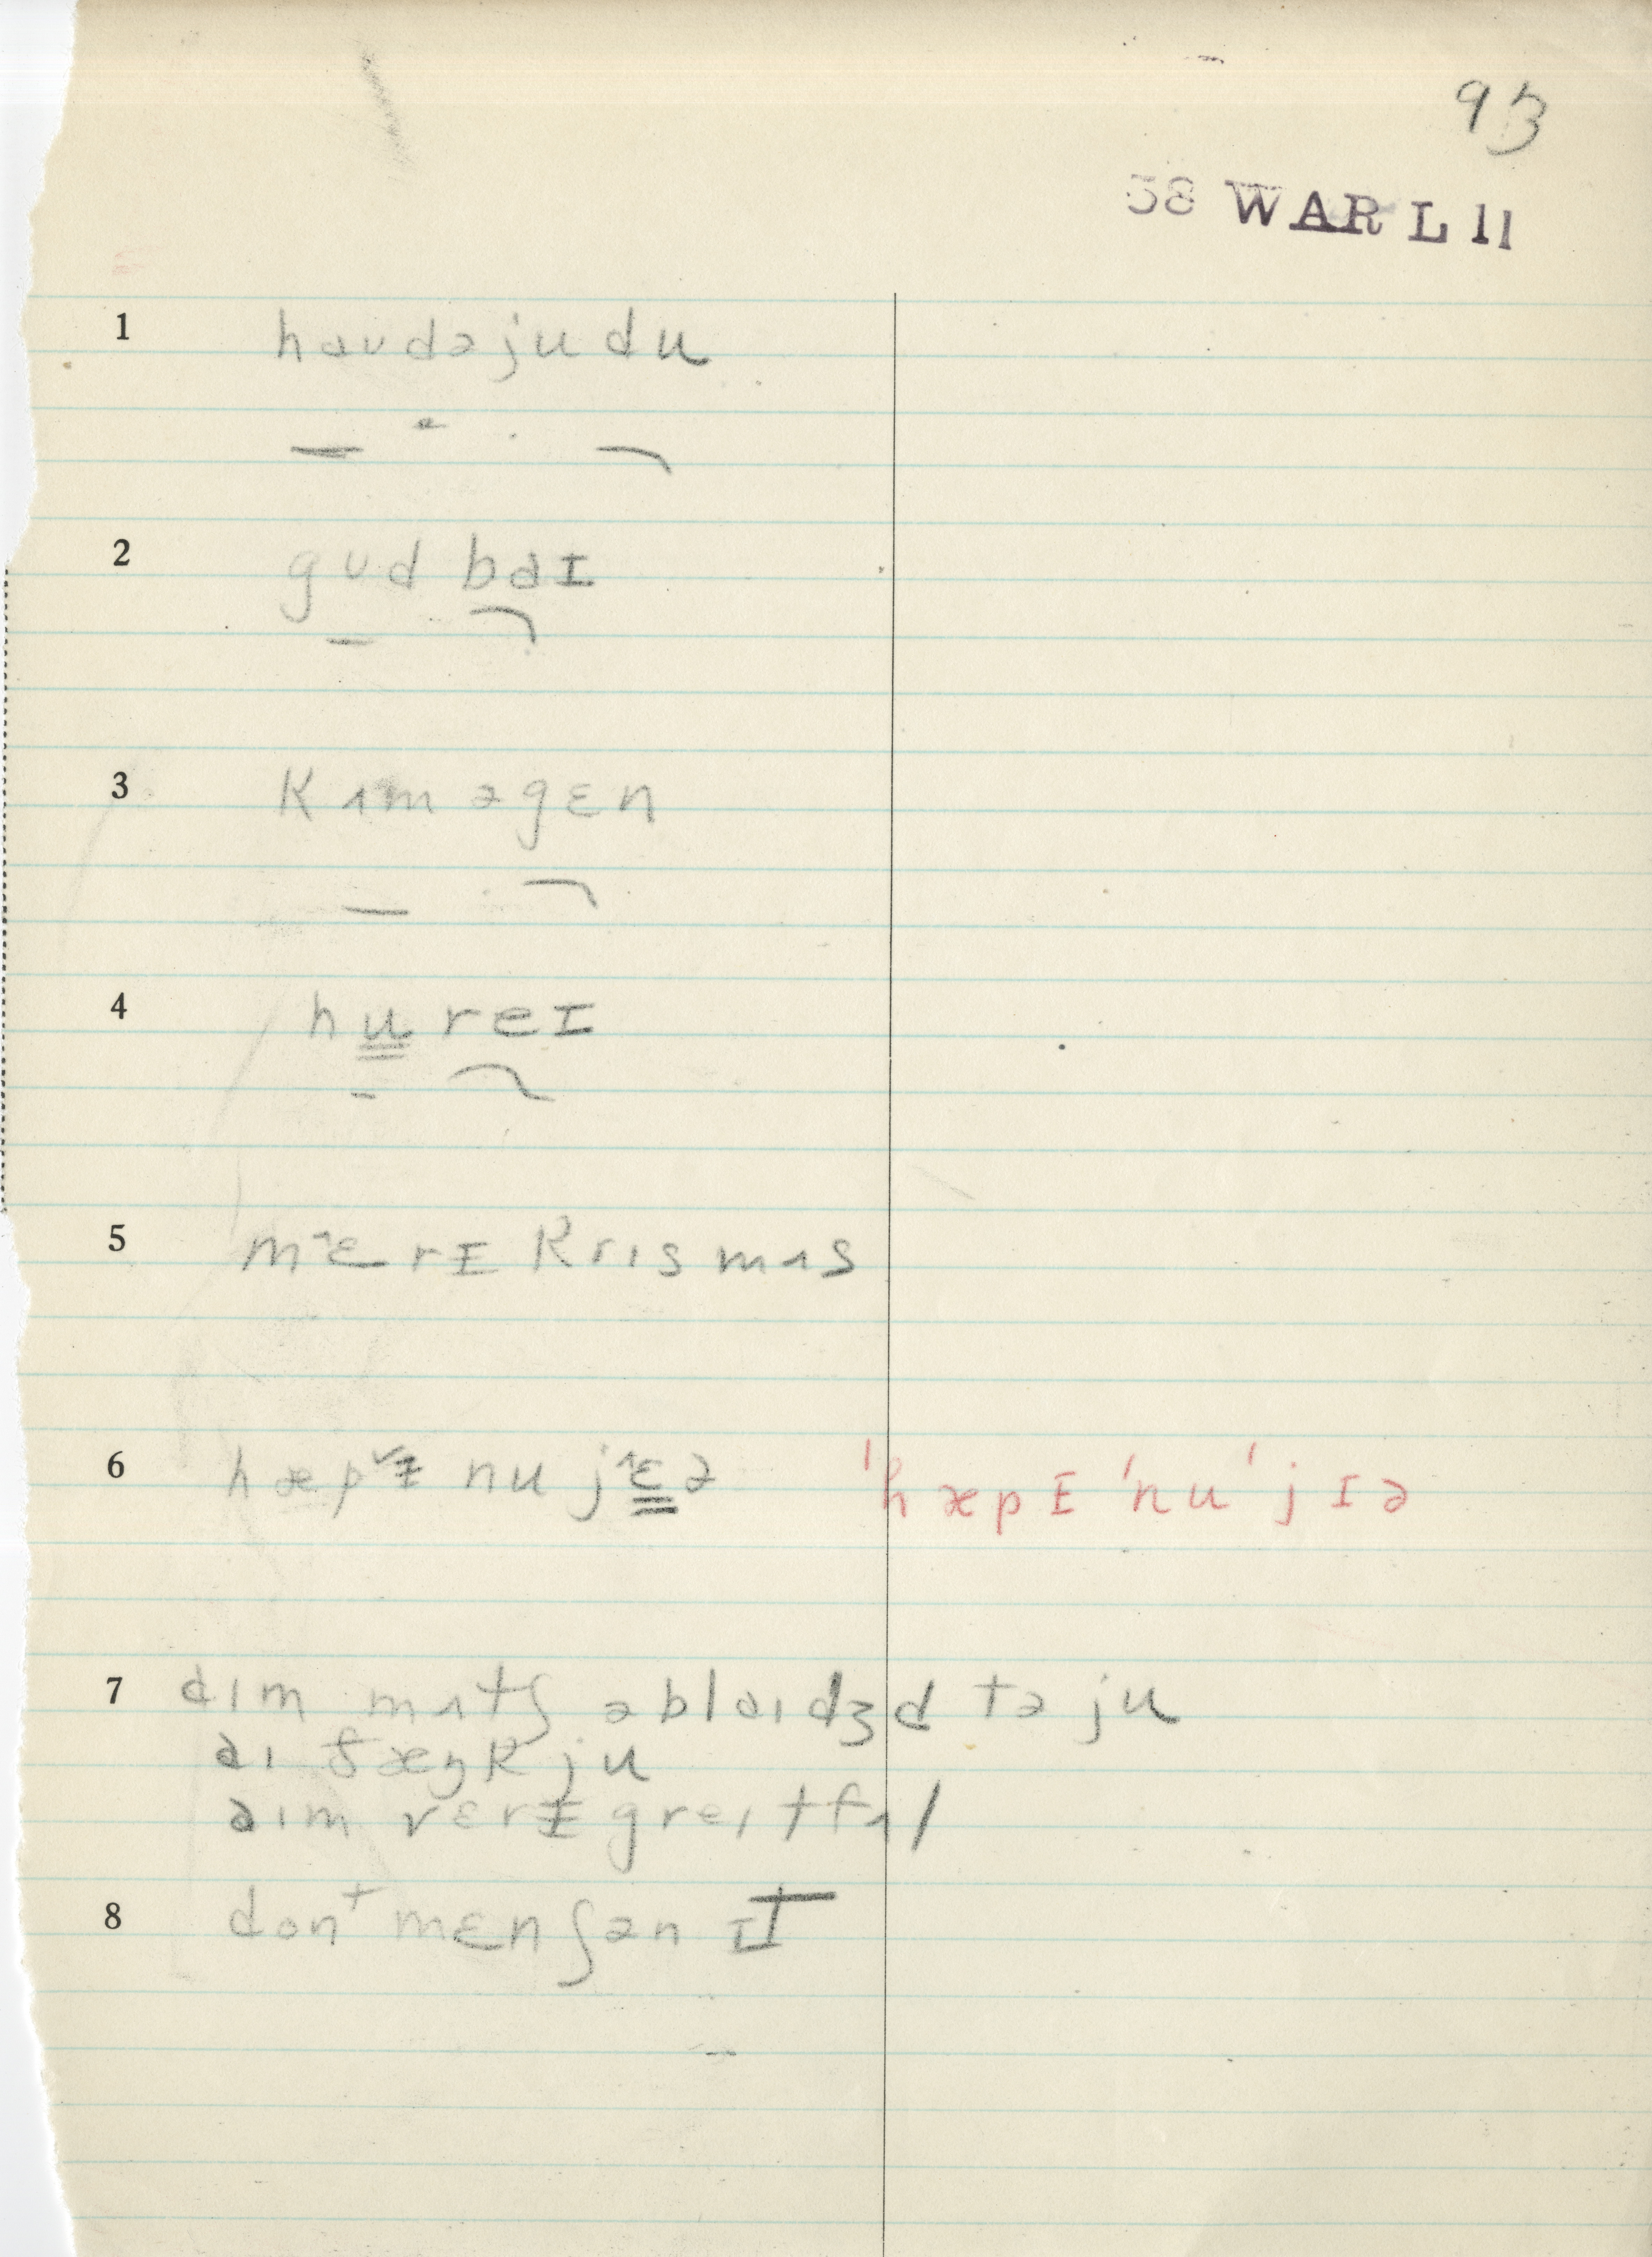 93
58 WAR L 11
1 haʊdəjudu
2 gʊd baɪ
3 kʌm əgɛn
4 hureɪ
5 mɛrɪ krɪsmʌs
6 hæpɪ nu jɛə 'hæpɪ 'nu 'jɪə
7 aɪm mʌtʃ əblaɪdʒd tə ju
aɪ θæŋk ju
aɪm vɛrɪ greɪtfʌl
8 dont mɛnʃən ɪt